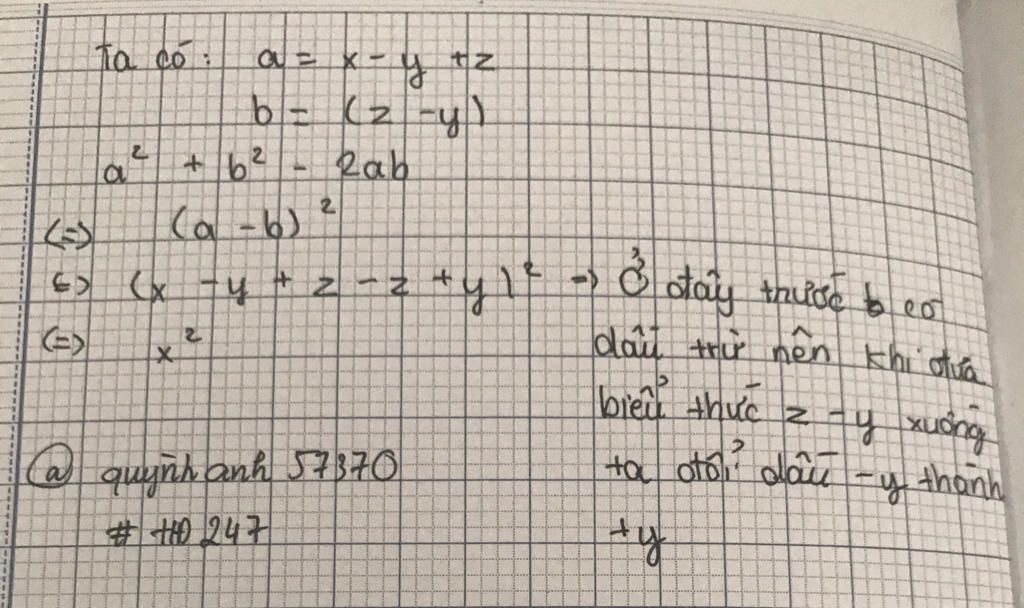 Ta có: a = x - y + z
b = (z - y)
a² + b² - 2ab
<=> (a - b)²
<=> (x - y + z - z + y)² => Ở đây trước b có
dấu trừ nên khi đưa
biểu thức z - y xuống
ta đổi dấu -y thành
+y
<=> x²
@ quỳnh anh 57370
# HĐ 247